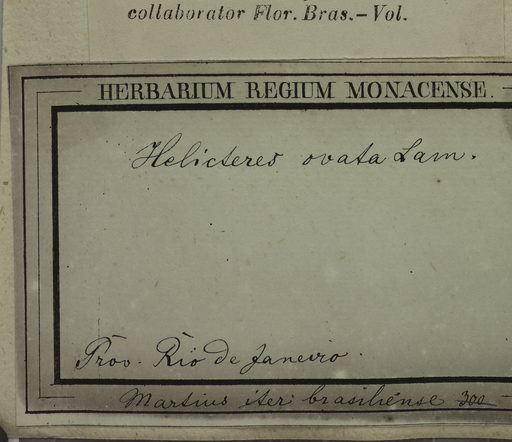 collaborator Flor. Bras.–Vol.
HERBARIUM REGIUM MONACENSE.
Helicteres ovata Lam.
Prov. Rio de Janeiro.
Martius iter brasiliense 300